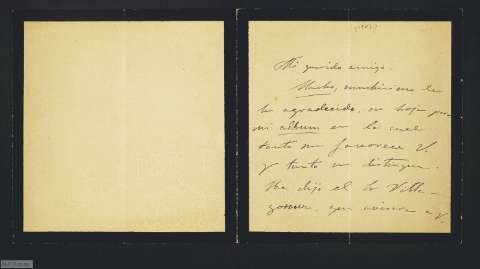 Mi querido amigo.
Mucho, muchísimo le
he agradecido, su hoja para
mi album en la cual
tanto me favorece V.
y tanto me distingue.
Me dijo el Sr Villa-
que V.